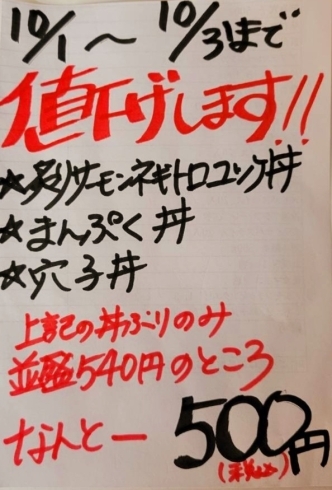 10/1～10/3まで
値下げします!!
☆炙りサーモンネギトロユッケ丼
☆まんぷく丼
☆穴子丼
上記の丼ぶりのみ
並盛540円のところ
なんとー 500円
(税込)